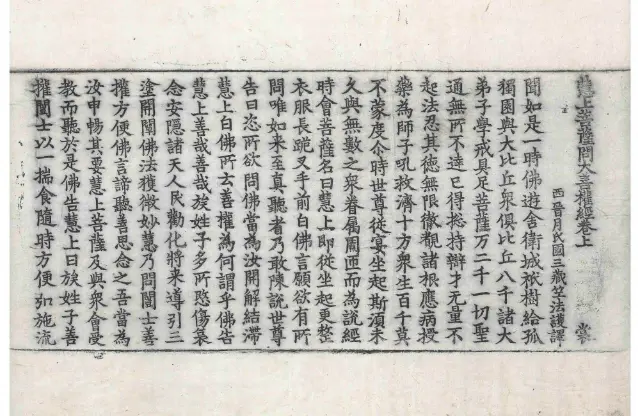 慧上菩薩問大善權經卷上
西晉月氏國三藏竺法護譯 裳
聞如是一時佛遊舍衛城祇樹給孤
獨園與大比丘衆俱比丘八千諸大
弟子學戒具足菩薩万二千一切聖
通無所不達已得揔持辯才无量不
起法忍其德無限徹覩諸根應病授
藥為師子吼救濟十方衆生百千莫
不蒙度尒時世尊從宴坐起斯湏未
久與無數之衆眷属周迊而為說經
時會菩薩名曰慧上即從坐起更整
衣服長跪叉手前白佛言願欲有所
問唯如来至真聽者乃敢陳說世尊
告曰恣所欲問佛當為汝開解結滯
慧上白佛所言善權為何謂乎佛告
慧上善哉善哉族姓子多所愍傷哀
念安隱諸天人民勸化將来導引三
塗開闡佛法獲微妙慧乃問闓士善
權方便佛言諦聽善思念之吾當為
汝申暢其要慧上菩薩及與衆會受
教而聽於是佛告慧上曰族姓子善
權闓士以一揣食隨時方便弘施流